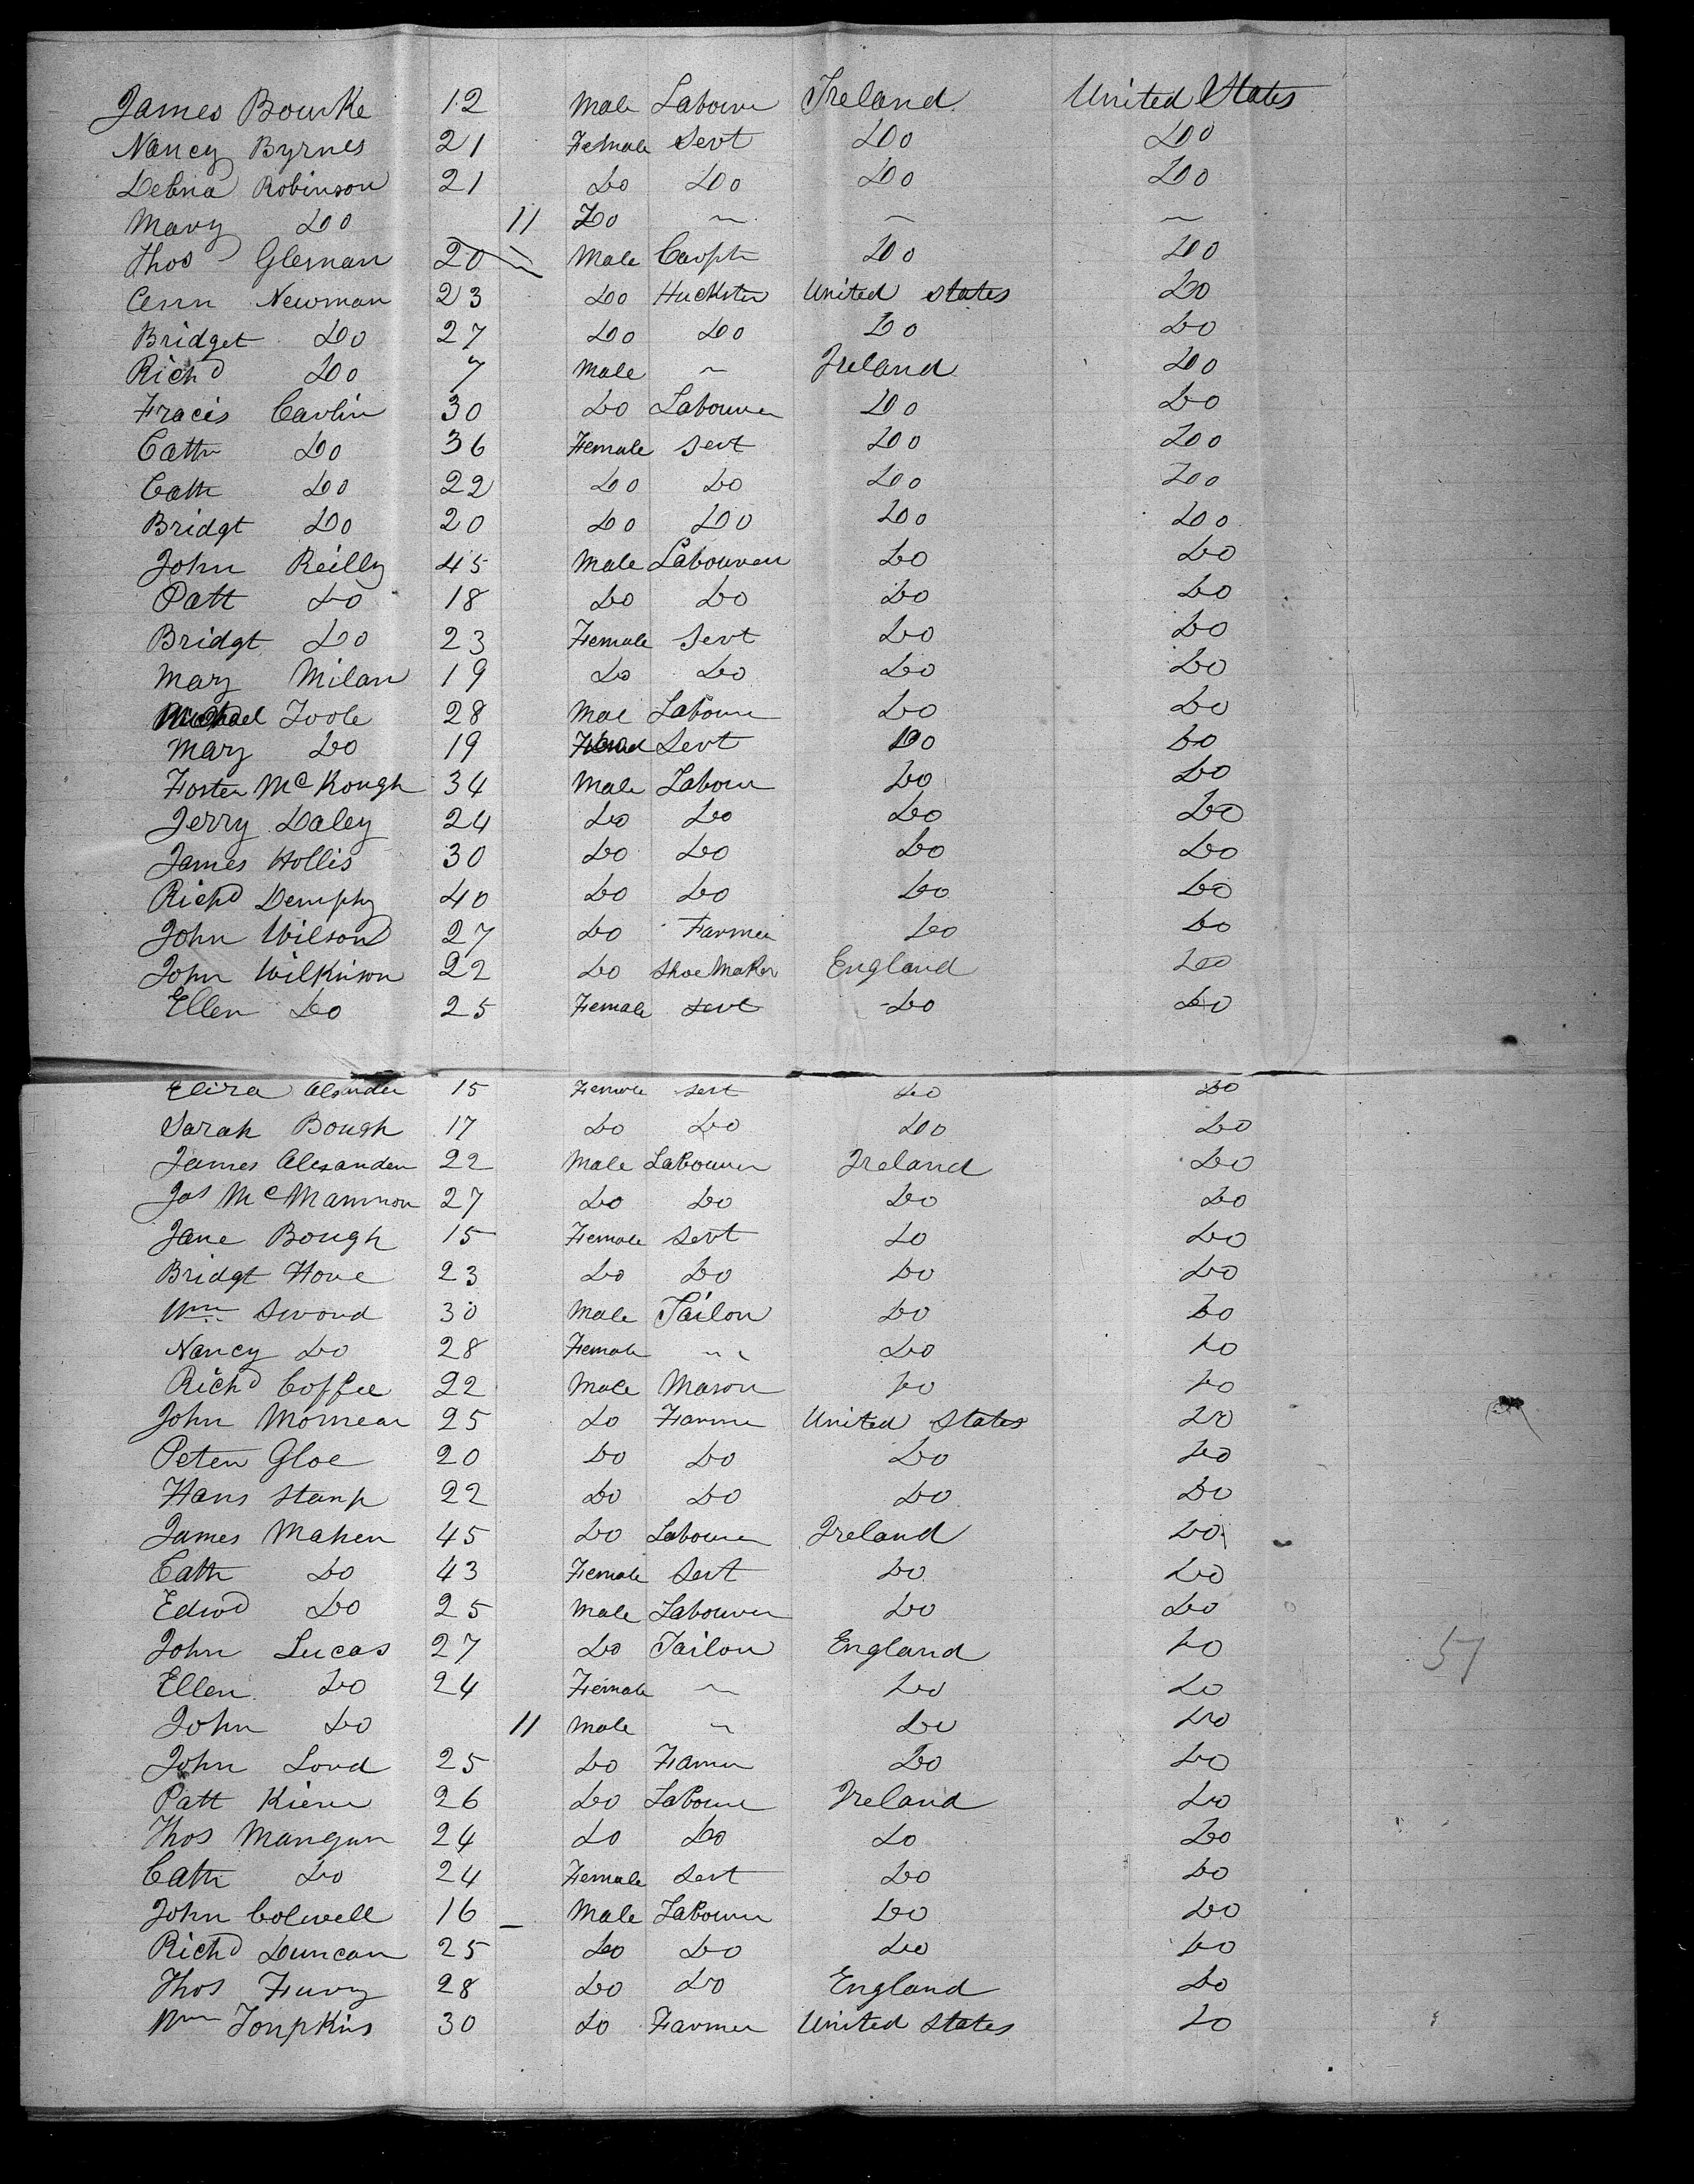 James Bourke 12 Male Labourer Ireland United States
Nancy Byrnes 21 Female Servt Do Do
Debna Robinson 21 Do Do Do Do
Mary Do 11 Do ~ ~ ~
Thos Glesnan 20 Male Carpt Do Do
Ann Newman 23 Do Huckster United States Do
Bridget Do 27 Do Do Do Do
Richd Do 7 Male ~ Ireland Do
Fracis Carlin 30 Do Labourer Do Do
Cathr Do 36 Female Servt Do Do
Cath Do 22 Do Do Do Do
Bridgt Do 20 Do Do Do Do
John Reilly 45 Male Labourer Do Do
Patt Do 18 Do Do Do Do
Bridgt Do 23 Female Servt Do Do
Mary Milan 19 Do Do Do Do
Michael Toole 28 Male Labour Do Do
Mary Do 19 Servt Do Do
Foster McKough 34 Male Labour Do Do
Jerry Daley 24 Do Do Do Do
James Hollis 30 Do Do Do Do
Richd Demphy 40 Do Do Do Do
John Wilson 27 Do Farmer Do Do
John Wilkinson 22 Do Shoe Maker England Do
Ellen Do 25 Female Servt Do Do
Eliza 15 Female Servt Do Do
Sarah Bough 17 Do Do Do Do
James Alexander 22 Male Labourer Ireland Do
Jas McMammon 27 Do Do Do Do
Jane Bough 15 Female Servt Do Do
Bridgt Hove 23 Do Do Do Do
Wm Sword 30 Male Tailor Do Do
Nancy Do 28 Female ~ Do Do
Richd Coffee 22 Male Mason Do Do
John Mornear 25 Do Farmer United States Do
Peter Gloe 20 Do Do Do Do
Hans Stamp 22 Do Do Do Do
James Maher 45 Do Labourer Ireland Do
Cath Do 43 Female Servt Do Do
Edwd Do 25 Male Labourer Do Do
John Lucas 27 Do Tailor England Do
57
Ellen Do 24 Female ~ Do Do
John Do 11 Male ~ Do Do
John Lord 25 Do Farmer Do Do
Patt Kiern 26 Do Labour Ireland Do
Thos Mangan 24 Do Do Do Do
Cath Do 24 Female Servt Do Do
John Colwell 16 Male Labour Do Do
Richd Duncan 25 Do Do Do Do
Thos Fury 28 Do Do England Do
Wm Tompkins 30 Do Farmer United States Do